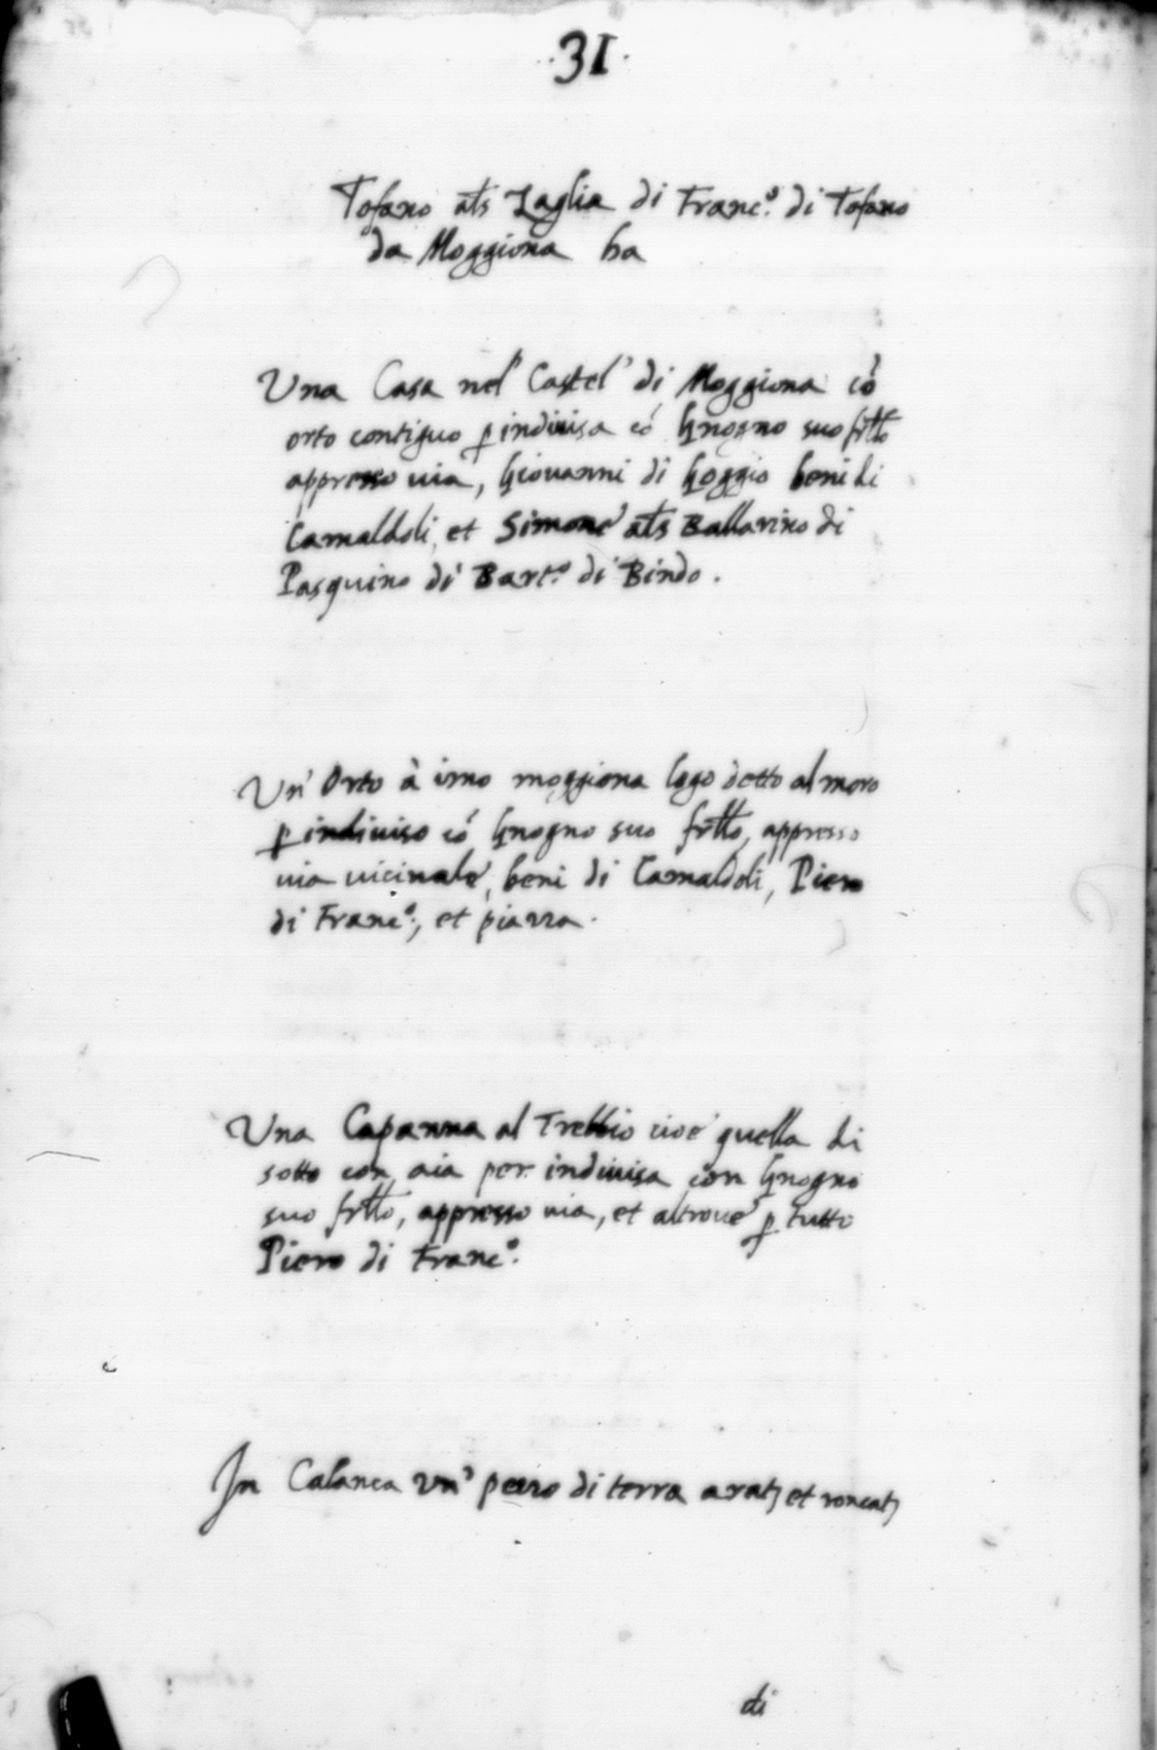 ·31·
Tofano als Zaglia di Franc.º di Tofano
da Moggiona ha
Una Casa nel Castel' di Moggiona cõ
orto contiguo p indiuisa cõ Gnogno suo frłło
appresso uia, Giouanni di Goggio beni di
Camaldoli, et Simone als Ballarino di
Pasquino di Bart.º di Bindo.
Un' Orto à imo moggiona logo detto al moro
p indiuiso cõ Gnogno suo frłło, appresso
uia uicinale, beni di Camaldoli, Piero
di Franc.º, et piazza.
Una Capanna al Trebbio cioe quella di
sotto con aia per indiuisa con Gnogno
suo frłło, appresso uia, et altroue p tutto
Piero di Franc.º
In Calanca un' pezzo di terra arat; et roncat;
di